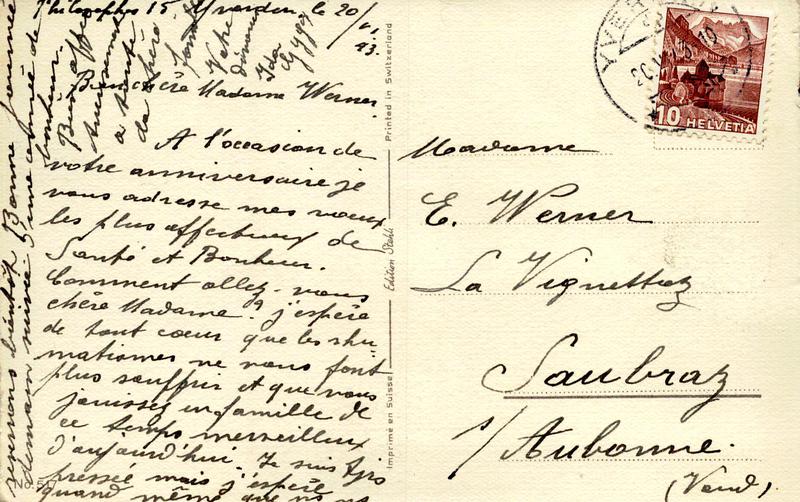 Philosophes 15. Yverdon, le 20/VI. 43.
Bien chère Madame Werner.
A l'occasion de
votre anniversaire je
vous adresse mes vœux
les plus affectueux de
Santé et Bonheur.
Comment allez-vous
chère Madame? j'espère
de tout cœur que les rhu-
matismes ne vous font
plus souffrir et que vous
jouissez en famille de
ce temps merveilleux
d'aujourd'hui. Je suis tjrs
pressée mais j'espère
quand même que ns ns
reverrons bientôt. Bonne journée
demain suivie d'une année de
bonheur.
Bien aff
à toute
la chère
Votre
Ida
Printed in Switzerland
Edition Stehli
Imprimé en Suisse
No. 517
YVERDON
20.VI.43.19
10 HELVETIA
Madame
E. Werner
La Vignettaz
Saubraz
s/Aubonne.
(Vaud).